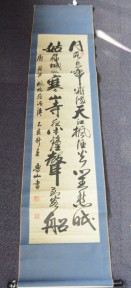 月落烏啼霜滿天江楓漁火對愁眠
姑蘇城外寒山寺夜半鐘聲到客船
楓橋夜泊 山書